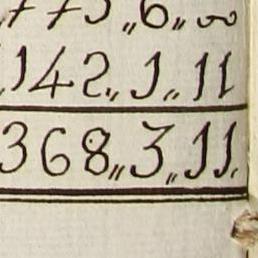 775„6„00
142„1„11
368„3„11.